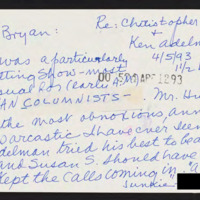 Bryan:
Re: Christopher
&
Ken Adelm
was a particularly
4/5/93
ting show - most
1/2
usual for (early A.M.)
00 50 APR 12 93
AN COLUMNISTS -
Mr. Hu
the most obnoxious, ann
warcastic I have ever seen
delman tried his best to be
and Susan S. should have
kept the calls coming in.
Junkie